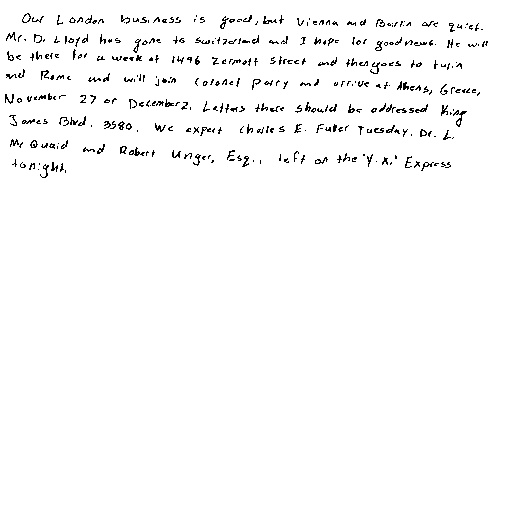 Our London business is good, but Vienna and Berlin are quiet.
Mr. D. Lloyd has gone to Switzerland and I hope for good news. He will
be there for a week at 1496 Zermott Street and then goes to Turin
and Rome and will join Colonel Parry and arrive at Athens, Greece,
November 27 or December 2. Letters there should be addressed King
James Blvd. 3580. We expect Charles E. Fuller Tuesday. Dr. L.
McQuaid and Robert Unger, Esq., left on the "Y. X." Express
tonight.